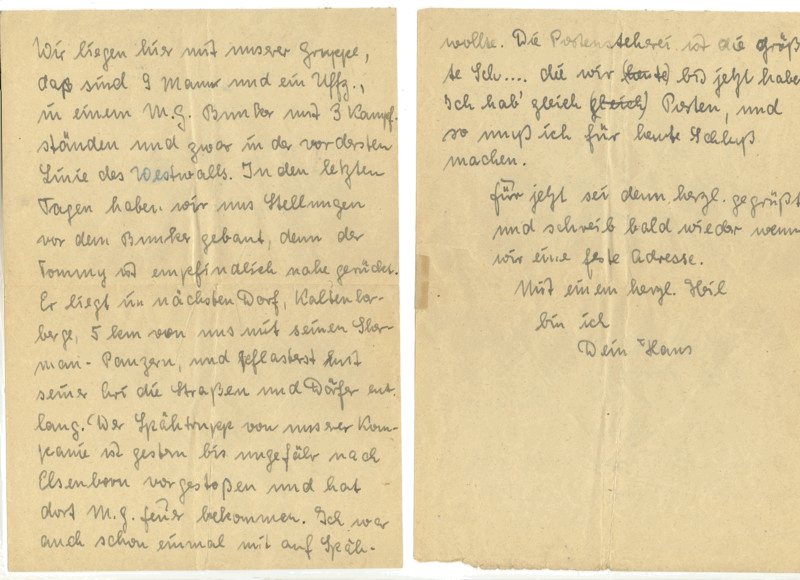 Wir liegen hier mit unserer Gruppe,
daß sind 9 Mann und ein Uffz.,
in einem M.G. Bunker mit 3 Kampf-
ständen und zwar in der vordersten
Linie des Westwalls. In den letzten
Tagen haben wir uns Stellungen
vor dem Bunker gebaut, denn der
Tommy ist empfindlich nahe gerückt.
Er liegt im nächsten Dorf,
berge, 5 km von uns mit seinen Sher-
man-Panzern, und
seiner die Straßen und Dörfer ent-
lang. Der Spähtrupp von unserer Kom-
panie ist gestern bis ungefähr nach
Elsenborn vorgestoßen und hat
dort M.G. feuer bekommen. Ich war
auch schon einmal mit auf Späh-
wollte. Die Postensteherei ist die größ
te Sch.... die wir (heute) bis jetzt habe
Ich hab' gleich (gleich) Posten, und
so muß ich für heute Schluß
machen.
für jetzt sei denn herzl. gegrüßt
und schreib bald wieder wenn
wir eine feste Adresse.
Mit einem herzl. Heil
bin ich
Dein Hans